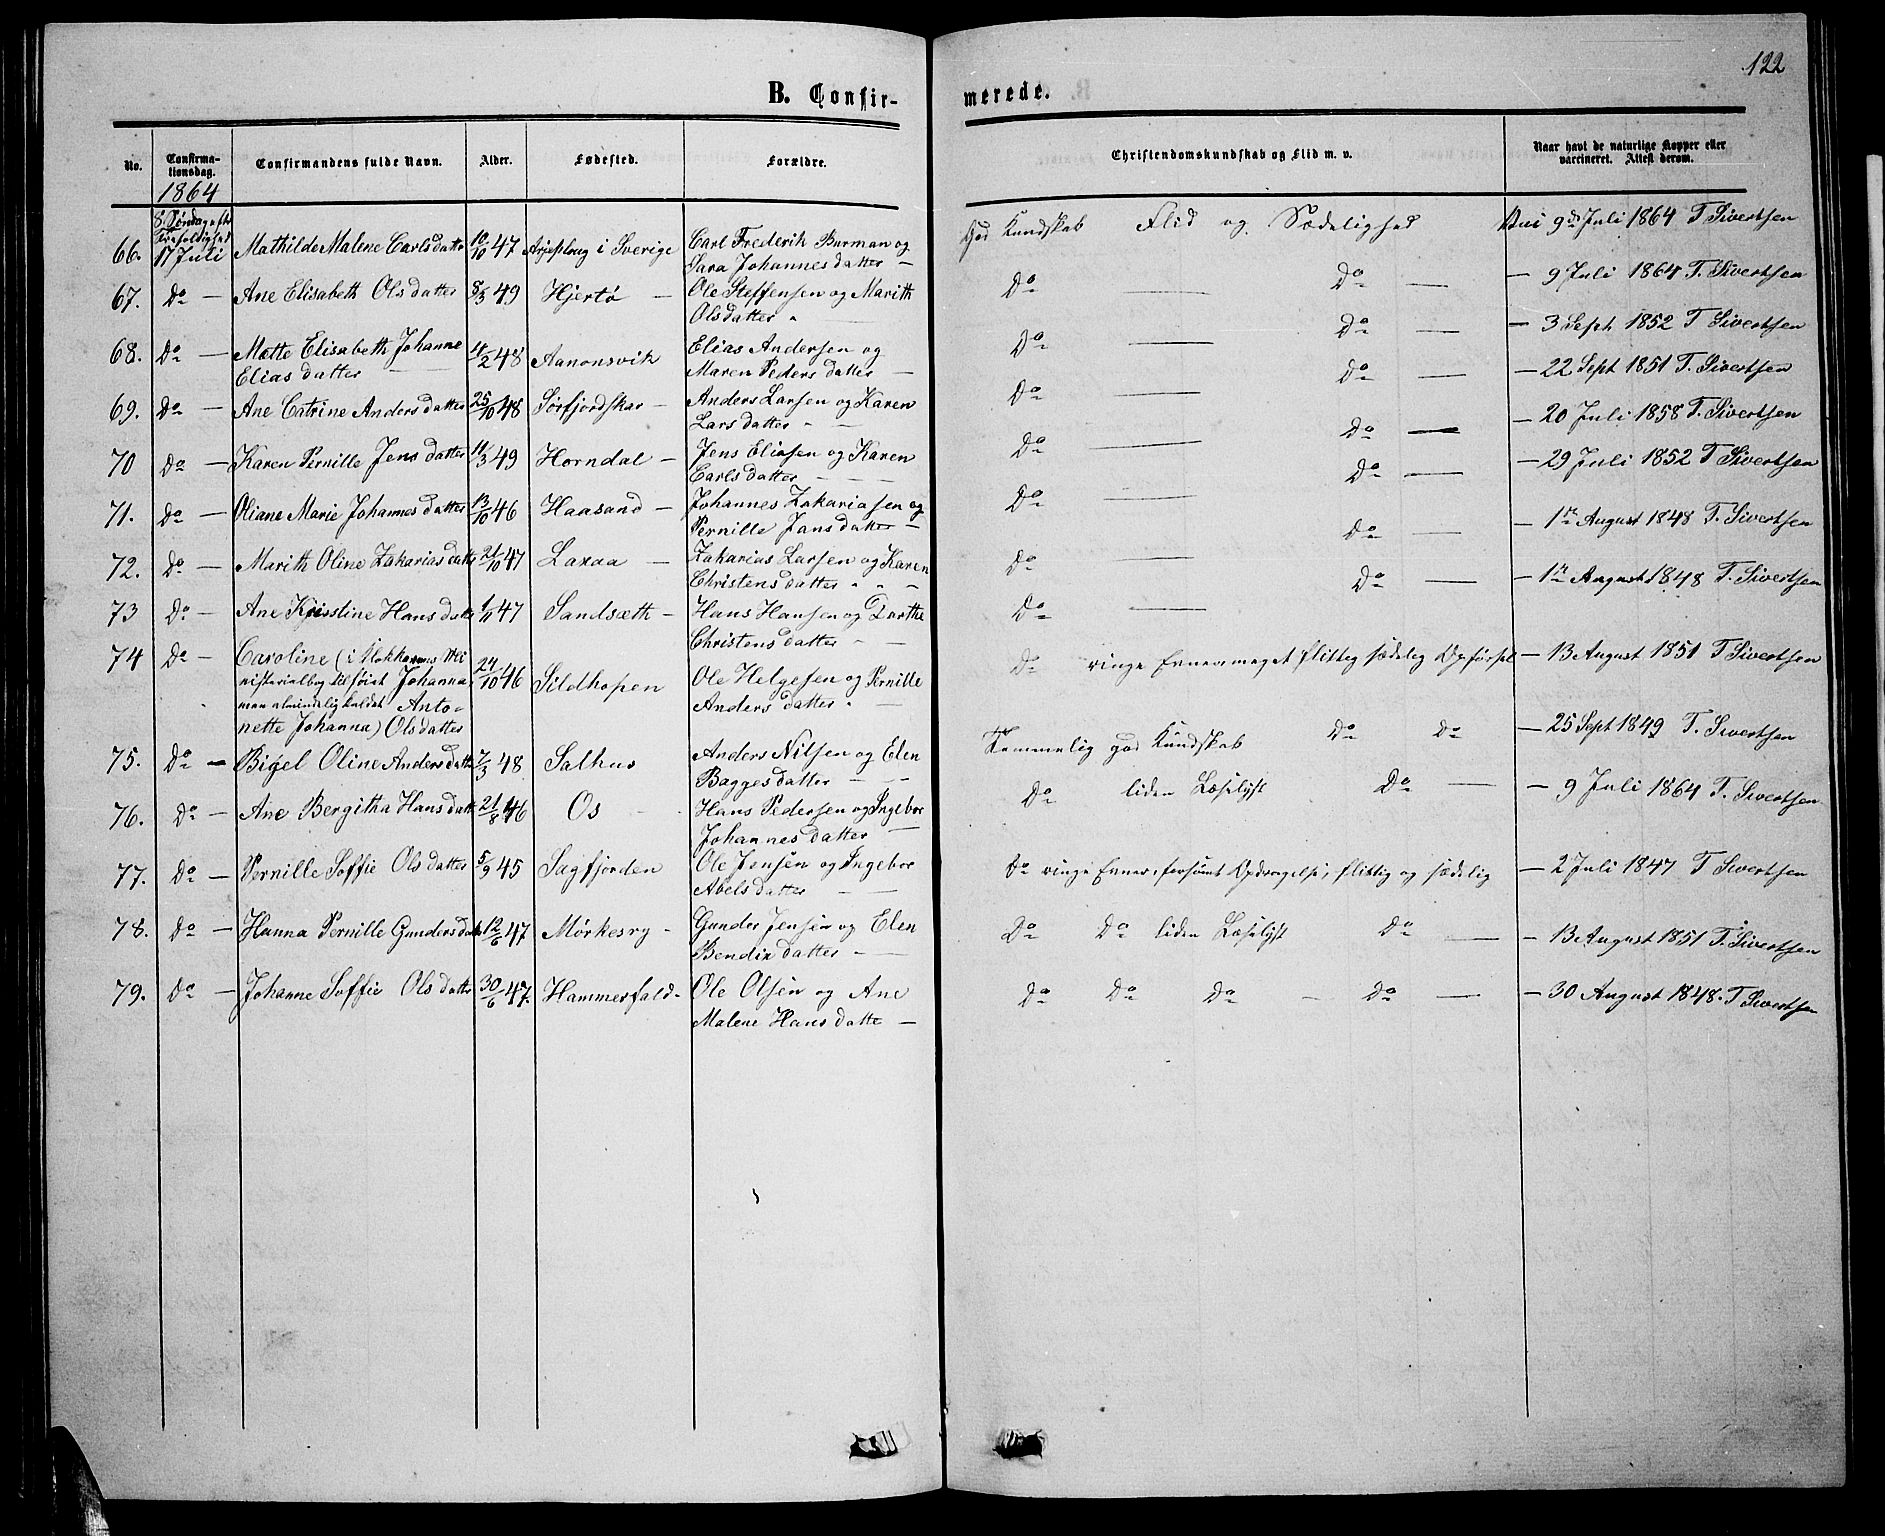 122
B. Confir-
merede.
No.
Confirma-
tionsdag.
Confirmandens fulde Navn.
Alder.
Fødested.
Forældre.
Christendomskundskab og Flid m. v.
Naar havt de naturlige Kopper eller
vaccineret. Attest derom.
1864
8 Søndag efter
Trefoldighed
66. 17 Juli Mathilde Malene Carlsdatter 10/10 47 Arjeploug i Sverige Carl Frederik Burman og
Sara Johannesdatter —
God Kundskab Flid og Sædelighed Vac 9de Juli 1864 T Sivertsen
67. Do — Ane Elisabeth Olsdatter 8/3 49 Hjertø — Ole Steffensen og Marith
Olsdatter
Do — Do — — 9 Juli 1864 T. Sivertsen
68. Do — Mette Elisabeth Johanne 11/2 48 Aanonsvik Elias Andersen og
Eliasdatter — Maren Pedersdatter —
Do — Do — — 3 Sept 1852 T Sivertsen
69. Do — Ane Catrine Andersdatter 25/10 48 Sørfjordskar — Anders Larsen og Karen
Larsdatter
Do — Do — — 22 Sept 1851 T. Sivertsen
70 Do — Karen Pernille Jensdatter 11/3 49 Horndal — Jens Eliasen og Karen
Carlsdatter —
Do — Do — — 20 Juli 1858 T. Sivertsen
71. Do — Oliane Marie Johannesdatter 13/10 46 Haasand — Johannes Zakariasen og
Pernille Jansdatter —
Do — Do — — 29 Juli 1852 T Sivertsen
72. Do — Marith Oline Zakariasdatter 21/10 47 Laxaa — Zakarias Larsen og Karen
Christensdatter
Do — Do — — 1ste August 1848 T. Sivertsen
73 Do — Ane Kristine Hansdatter 1/11 47 Sandsæth — Hans Hansen og Dorthe
Christensdatter
Do — Do — — 1ste August 1848 T. Sivertsen
74 Do — Caroline (i Klokkerens Mi
nisterialbog tilføiet Johanna, 24/10 46 Sildhopen Ole Helgesen og Pernille
man almindelig kaldet Anto- Andersdatter —
nette Johanna) Olsdatter
Do ringe Evner meget flittig sædelig Opførsel — 13 August 1851 T Sivertsen
75. Do — Bigel Oline Andersdatter 7/3 48 Salhus Anders Nilsen og Elen
Baggesdatter —
Temmelig god Kundskab Do Do — 25 Sept 1849 T. Sivertsen
76. Do — Ane Bergitha Hansdatter 21/8 46 Os — Hans Pedersen og Ingebor
Johannesdatter —
Do liden Læselyst Do — — 9 Juli 1864 T. Sivertsen
77. Do — Pernille Soffie Olsdatter 5/9 45 Sagfjorden Ole Jensen og Ingebor
Abelsdatter —
Do ringe Evner, forsømt Opdragelse, flittig og sædelig — 2 Juli 1847 T Sivertsen
78. Do — Hanna Pernille Gundersdatter 12/6 47 Mørkesry — Gunder Jensen og Elen
Bendixdatter —
Do Do liden Læselyst Do — — 13 August 1851 T. Sivertsen
79. Do — Johanne Soffie Olsdatter 30/6 47. Hammerfald — Ole Olsen og Ane
Malene Hansdatter —
Do Do Do — Do — — 30 August 1848. T Sivertsen